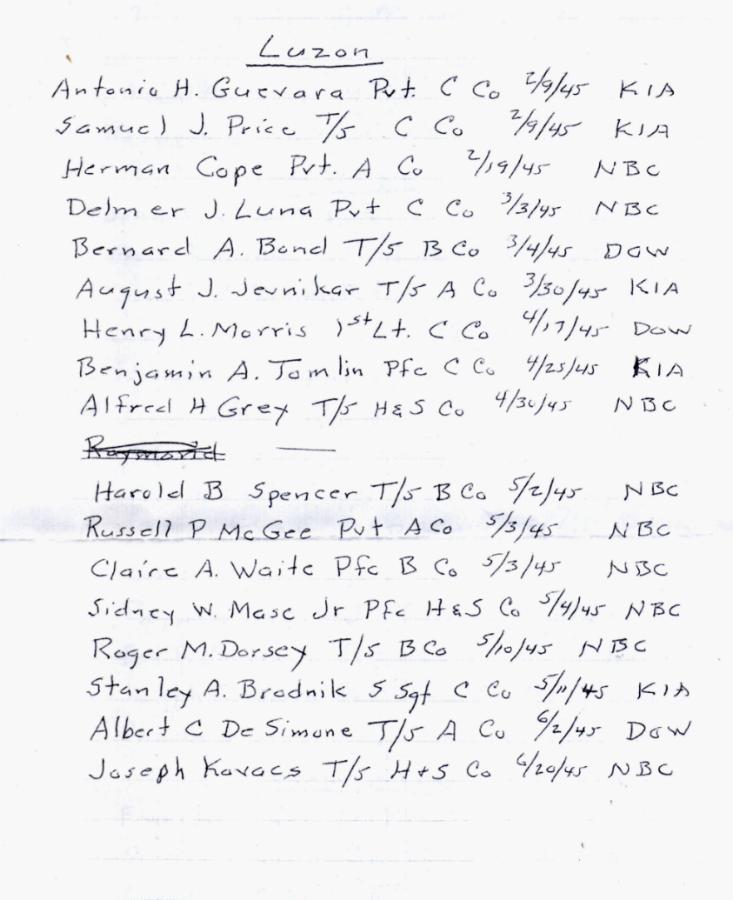 Luzon
Antonio H. Guevara Pvt. C Co 2/9/45 KIA
Samuel J. Price T/5 C Co 2/9/45 KIA
Herman Cope Pvt. A Co 2/19/45 NBC
Delmer J. Luna Pvt C Co 3/3/45 NBC
Bernard A. Bond T/5 B Co 3/4/45 DOW
August J. Jevnikar T/5 A Co 3/30/45 KIA
Henry L. Morris 1st Lt. C Co 4/17/45 DOW
Benjamin A. Tomlin Pfc C Co 4/25/45 KIA
Alfred H Grey T/5 H&S Co 4/30/45 NBC
Raymond —
Harold B Spencer T/5 B Co 5/2/45 NBC
Russell P McGee Pvt A Co 5/3/45 NBC
Claire A. Waite Pfc B Co 5/3/45 NBC
Sidney W. Mase Jr Pfc H&S Co 5/4/45 NBC
Roger M. Dorsey T/5 B Co 5/10/45 NBC
Stanley A. Brodnik S Sgt C Co 5/11/45 KIA
Albert C De Simone T/5 A Co 6/2/45 DOW
Joseph Kovacs T/5 H+S Co 6/20/45 NBC